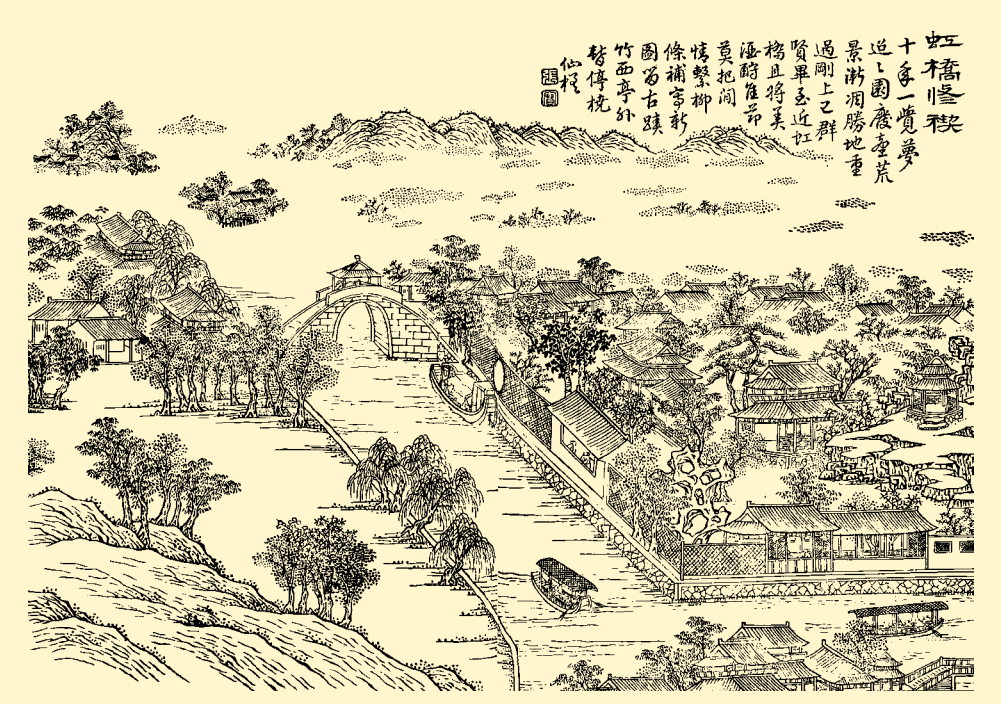 虹橋修禊
十年一覺夢
迢〻園廢臺荒
景漸凋勝地重
過剛上巳群
賢畢至近虹
橋且將美
酒酧佳節
莫把閒
情繫柳
條補寫新
圖留古蹟
竹西亭外
暫停橈
仙槎